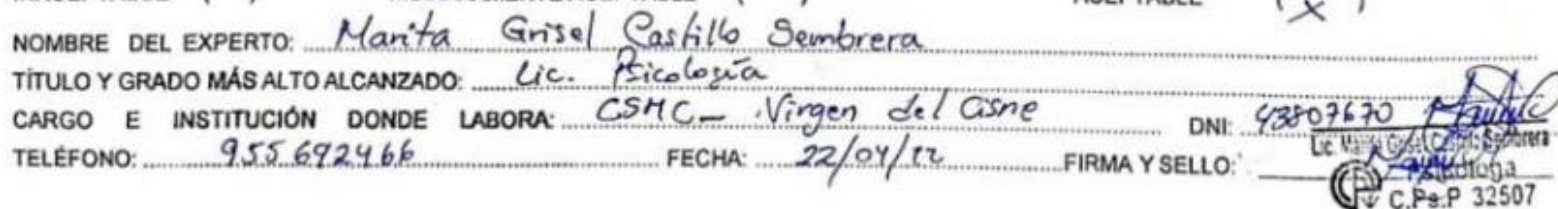 ACEPTABLE (X)
NOMBRE DEL EXPERTO: Marita Grisel Castillo Sembrera
TÍTULO Y GRADO MÁS ALTO ALCANZADO: Lic. Psicología
CARGO E INSTITUCIÓN DONDE LABORA: CSMC - Virgen del Cisne DNI: 43807670
TELÉFONO: 955692466 FECHA: 22/04/22 FIRMA Y SELLO:
Lic. Marita Grisel Castillo Sembrera
Psicóloga
C.Ps.P 32507